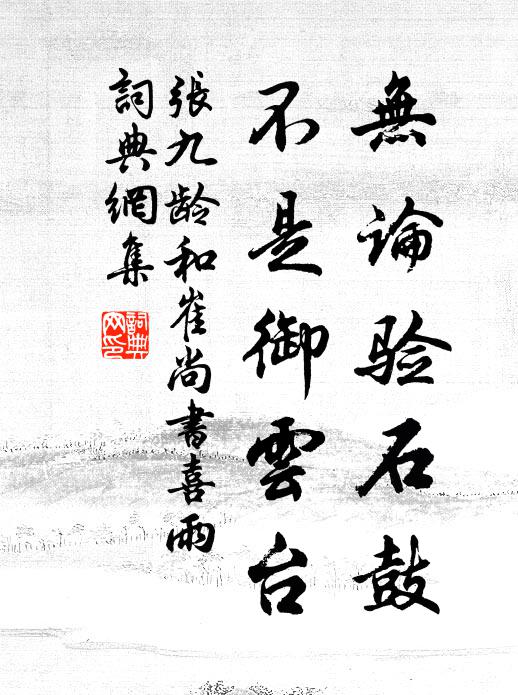 無論验石鼓
不是御雲台
張九龄和崔尚書喜雨
詞典網集
詞典網印